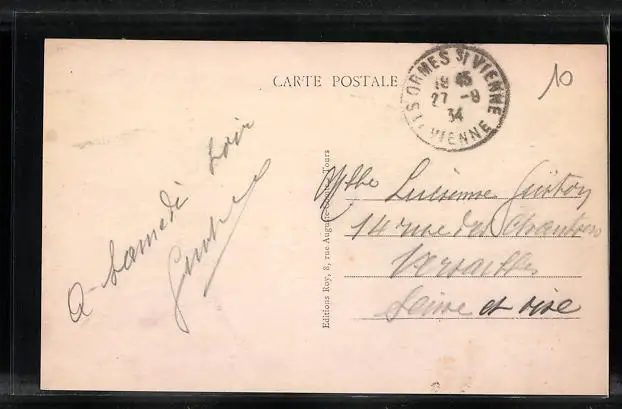 CARTE POSTALE
LES ORMES S/ VIENNE
18 45
27 - 9
34
VIENNE
10
A samedi soir
Editions Roy, 8, rue Auguste-Comte, Tours
Mlle Lucienne
14 rue des Chantiers
Versailles
Seine et oise